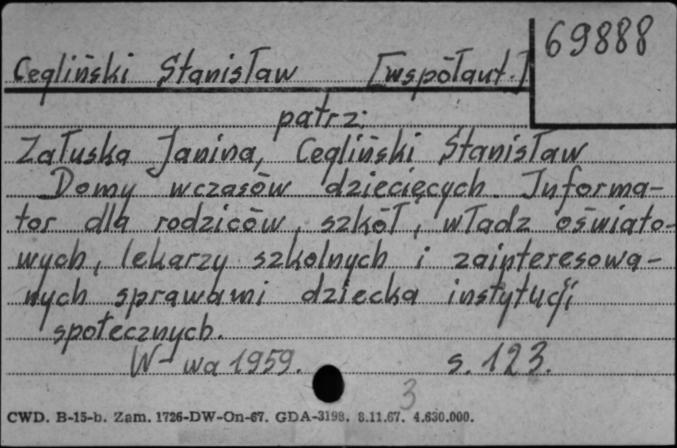 69888
Cegliński Stanisław [współaut.]
patrz:
Załuska Janina, Cegliński Stanisław
Domy wczasów dziecięcych. Informa-
tor dla rodziców, szkół, władz oświato-
wych, lekarzy szkolnych i zainteresowa-
nych sprawami dziecka instytucji
społecznych.
W-wa 1959. s. 123.
3
CWD. B-15-b. Zam. 1726-DW-On-67. GDA-3198. 8.11.67. 4.630.000.